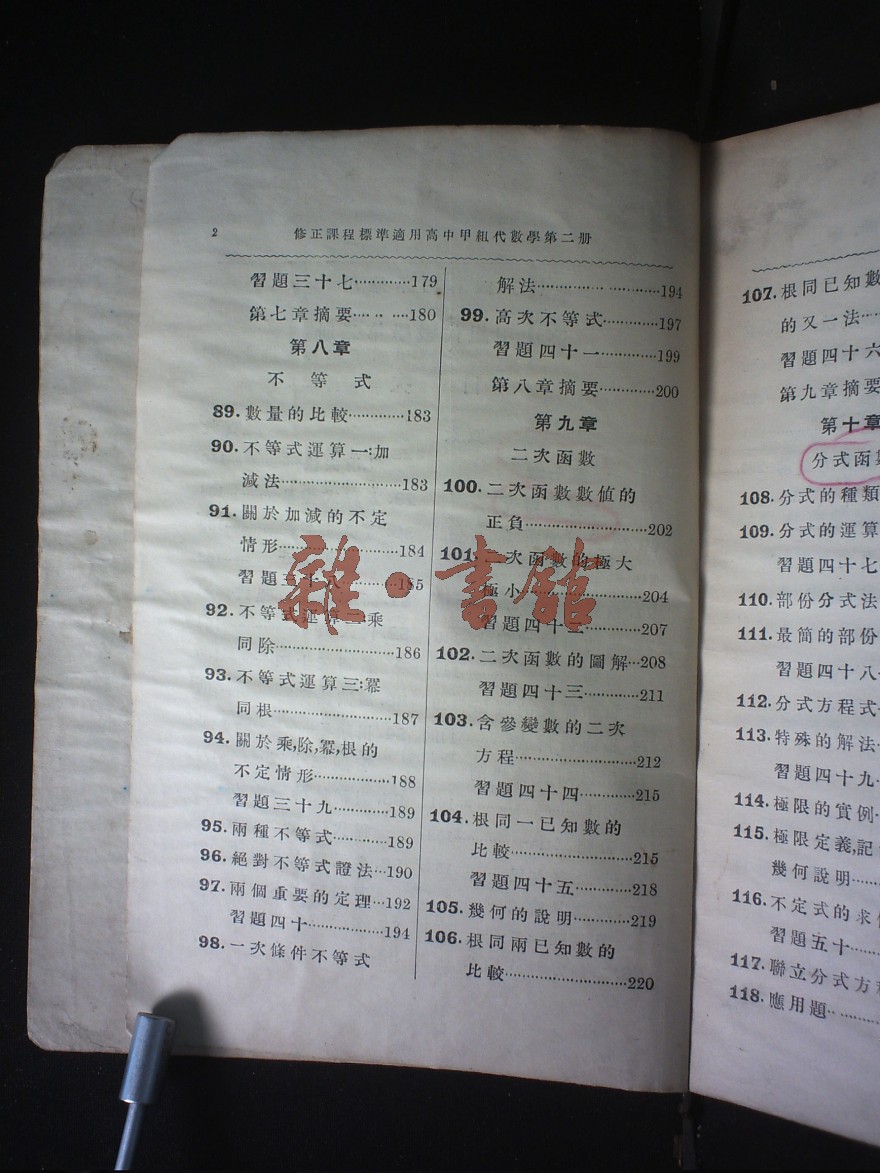 2 修正課程標準適用高中甲組代數學第二册
習題三十七…………179
第七章摘要………180
第八章
不等式
89.數量的比較…………183
90.不等式運算一:加
減法……………………183
91.關於加減的不定
情形……………………184
習題三十八…………185
92.不等式運算二:乘
同除……………………186
93.不等式運算三:冪
同根……………………187
94.關於乘,除,冪,根的
不定情形………………188
習題三十九…………189
95.兩種不等式…………189
96.絕對不等式證法…190
97.兩個重要的定理…192
習題四十………………194
98.一次條件不等式
解法……………………194
99.高次不等式…………197
習題四十一…………199
第八章摘要…………200
第九章
二次函數
100.二次函數數值的
正負……………………202
101.二次函數的極大
極小……………………204
習題四十二…………207
102.二次函數的圖解…208
習題四十三…………211
103.含參變數的二次
方程……………………212
習題四十四…………215
104.根同一已知數的
比較……………………215
習題四十五…………218
105.幾何的說明…………219
106.根同兩已知數的
比較……………………220
107.根同已知數
的又一法……
習題四十六
第九章摘要
第十章
分式函數
108.分式的種類
109.分式的運算
習題四十七
110.部份分式法
111.最簡的部份
習題四十八
112.分式方程式
113.特殊的解法
習題四十九
114.極限的實例
115.極限定義,記
幾何說明……
116.不定式的求
習題五十……
117.聯立分式方程
118.應用題……
雜·書館